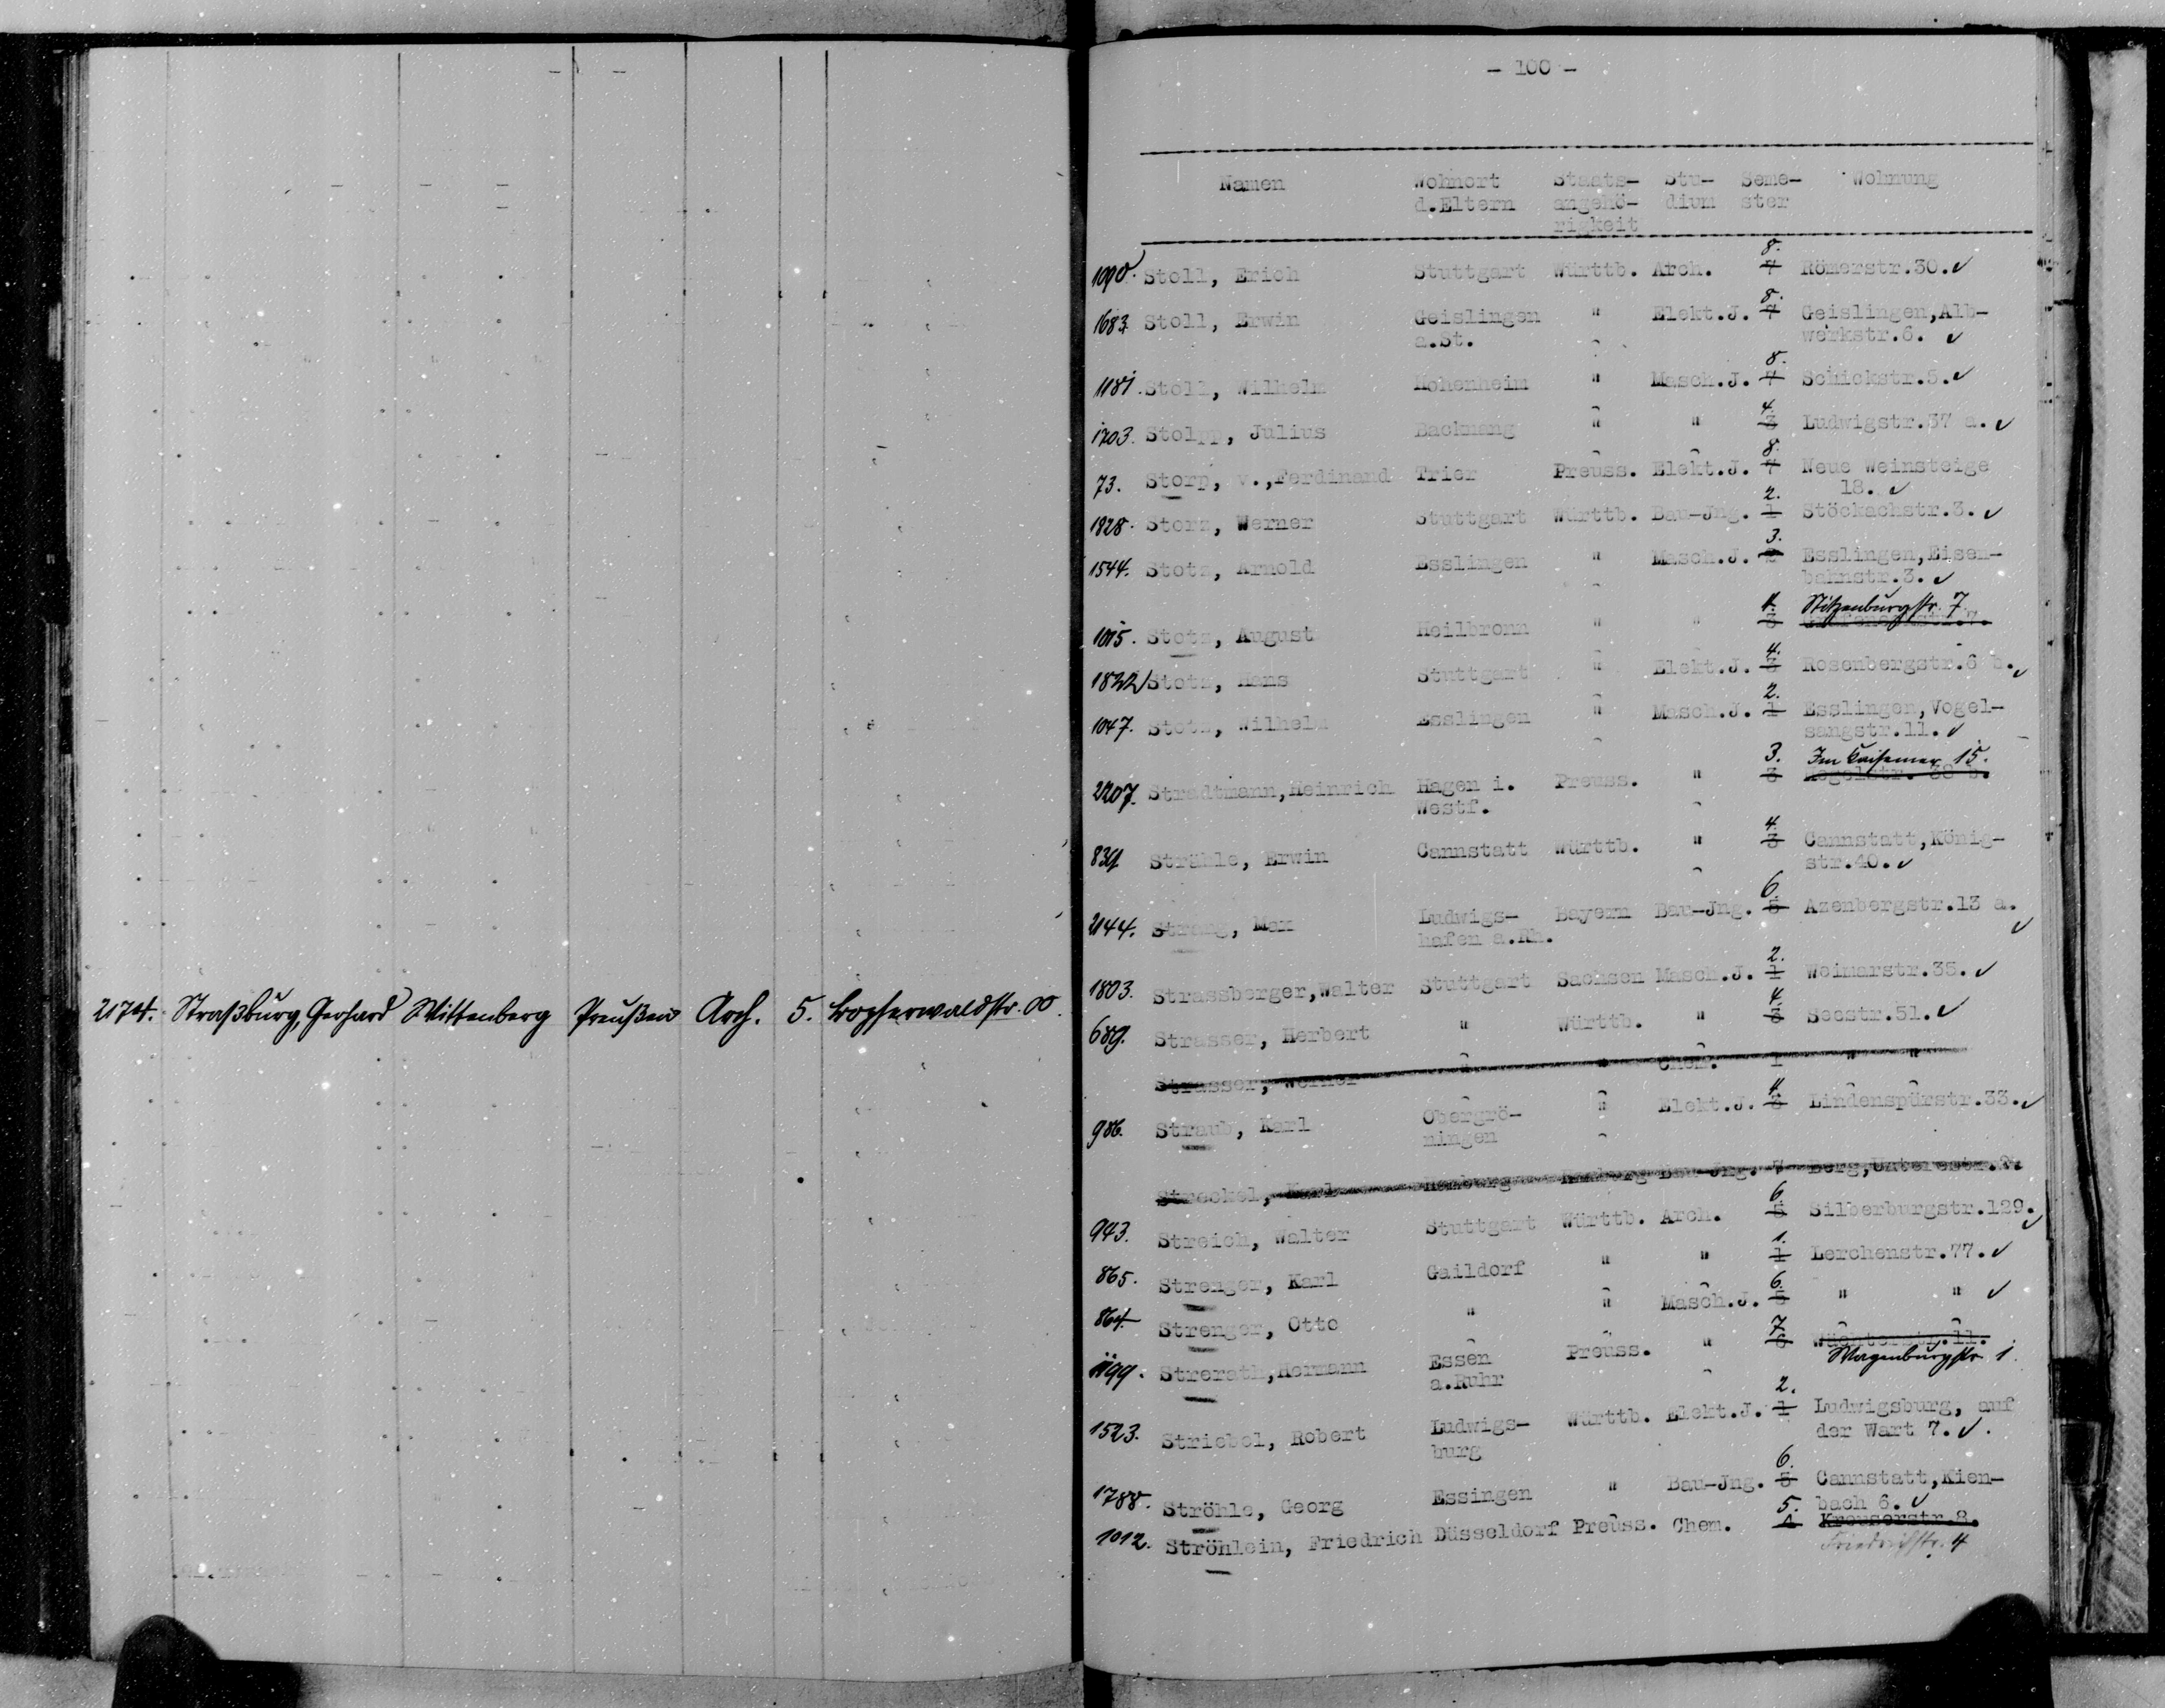 2174. Straßburg, Gerhard Wittenberg Preußen Arch. 5.
- 100 -
Namen Wohnort Staats- Stu- Seme- Wohnung
d.Eltern angehö- dium ster
rigkeit
8.
1090. Stoll, Erich Stuttgart Württb. Arch. 7 Römerstr.30. ✓
8.
1683. Stoll, Erwin Geislingen " Elekt.J. 7 Geislingen,Alb-
a.St. werkstr.6. ✓
8.
1181. Stoll, Wilhelm Hohenheim " Masch.J. 7 Schickstr.5. ✓
4.
1703. Stolpp, Julius Backnang " " 3 Ludwigstr.37 a. ✓
8.
73. Storp, v.,Ferdinand Trier Preuss. Elekt.J. 7 Neue Weinsteige
18. ✓
2.
1828. Storz, Werner Stuttgart Württb. Bau-Jng. 1 Stöckachstr.3. ✓
3.
1544. Stotz, Arnold Esslingen " Masch.J. 2 Esslingen,Eisen-
bahnstr.3. ✓
4. Stitzenburgstr. 7.
1015. Stotz, August Heilbronn " " 3
4.
1822 Stotz, Hans Stuttgart " Elekt.J. 3 Rosenbergstr.6 b. ✓
2.
1047. Stotz, Wilhelm Esslingen " Masch.J. 1 Esslingen,Vogel-
sangstr.11. ✓
3. Im Kaisemer 15.
2207. Stradtmann,Heinrich Hagen i. Preuss. " 3 Hegelstr. 38 b.
Westf.
4.
839 Strähle, Erwin Cannstatt Württb. " 3 Cannstatt,König-
str.40. ✓
6
2144. Max Ludwigs- Bayern Bau-Jng. 5 Azenbergstr.13 a. ✓
hafen a.Rh.
2.
1803. Strassberger,Walter Stuttgart Sachsen Masch.J. 1 Weimarstr.35. ✓
4.
689. Strasser, Herbert " Württb. " 3 Seestr.51. ✓
Strasser, Werner " " Chem. 1 " "
4.
986. Straub, Karl Obergrö- " Elekt.J. 3 Lindenspürstr.33. ✓
ningen
Streckel, Karl Hamburg Hamburg Bau-Jng. 7 Berg,Unterestr.
6.
943. Streich, Walter Stuttgart Württb. Arch. 5 Silberburgstr.129. ✓
1.
865. Strenger, Karl Gaildorf " " 1 Lerchenstr.77. ✓
6.
864. Strenger, Otto " " Masch.J. 5 " " ✓
7
1199. Strerath,Hermann Essen Preuss. " 6 Wächterstr.11.
a.Ruhr Wagenburgstr. 1.
2.
1523. Striebel, Robert Ludwigs- Württb. Elekt.J. 1 Ludwigsburg, auf
burg der Wart 7. ✓.
6.
1788. Ströhle, Georg Essingen " Bau-Jng. 5 Cannstatt,Kien-
bach 6. ✓
5.
1012. Ströhlein, Friedrich Düsseldorf Preuss. Chem. 4 Kreuserstr.8.
Friedrichstr. 4